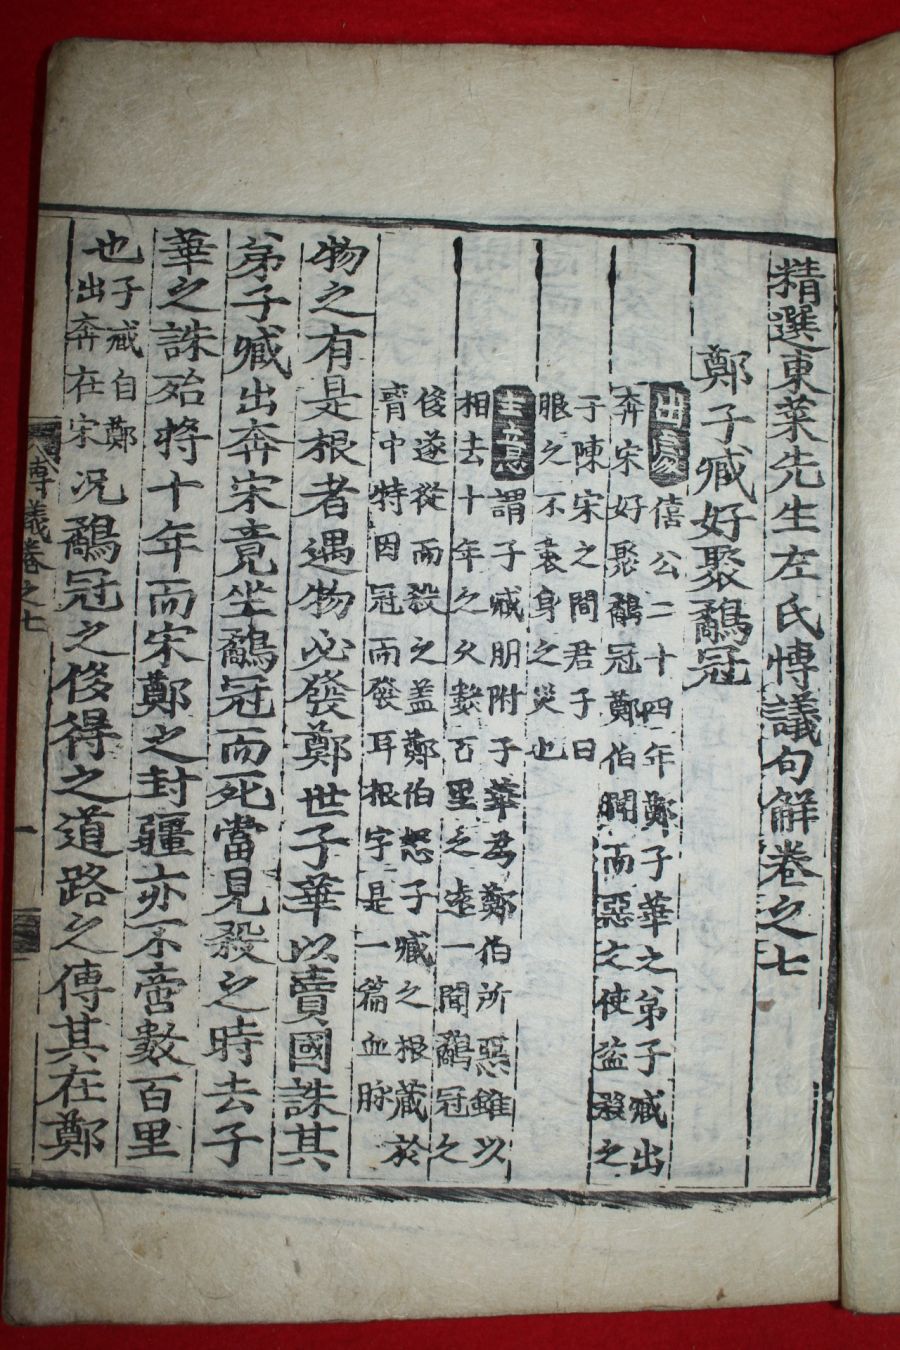 精選東萊先生左氏博議句解卷之七
鄭子臧好聚鷸冠
出處 僖公二十四年鄭子華之弟子臧出
奔宋好聚鷸冠鄭伯聞而惡之使盜殺之
于陳宋之間君子曰
服之不衷身之災也
主意 謂子臧朋附子華為鄭伯所惡雖以
相去十年之久數百里之遠一聞鷸冠之
後遂從而殺之盖鄭伯怒子臧之根藏於
胷中特因冠而發耳根字是一篇血脉
物之有是根者遇物必發鄭世子華以賣國誅其
弟子臧出奔宋竟坐鷸冠而死當見殺之時去子
華之誅殆將十年而宋鄭之封疆亦不啻數百里
也子臧自鄭
出奔在宋況鷸冠之侈得之道路之傳其在鄭
博議卷之七
一